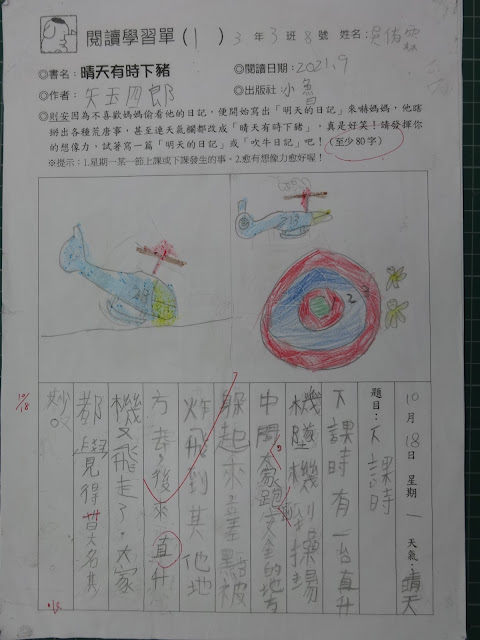 閱讀學習單(1) 3年3班8號 姓名：
◎書名：晴天有時下豬 ◎閱讀日期：2021.9
◎作者：矢玉四郎 ◎出版社 小魯
◎則安因為不喜歡媽媽偷看他的日記，便開始寫出「明天的日記」來嚇媽媽，他瞎
掰出各種荒唐事，甚至連天氣欄都改成「晴天有時下豬」，真是好笑！請發揮你
的想像力，試著寫一篇「明天的日記」或「吹牛日記」吧！(至少80字)
※提示：1.星期一某一節上課或下課發生的事。2.愈有想像力愈好喔！
10月18日 星期一 天氣：晴天
題目：下課時
下課時有一台直升
機墜機到操場
中間。大家跑到安全的地方
躲起來，差點被
炸飛到其他地
方去，後來直升
機又飛走了。大家
都覺得莫名其
妙。
10/18